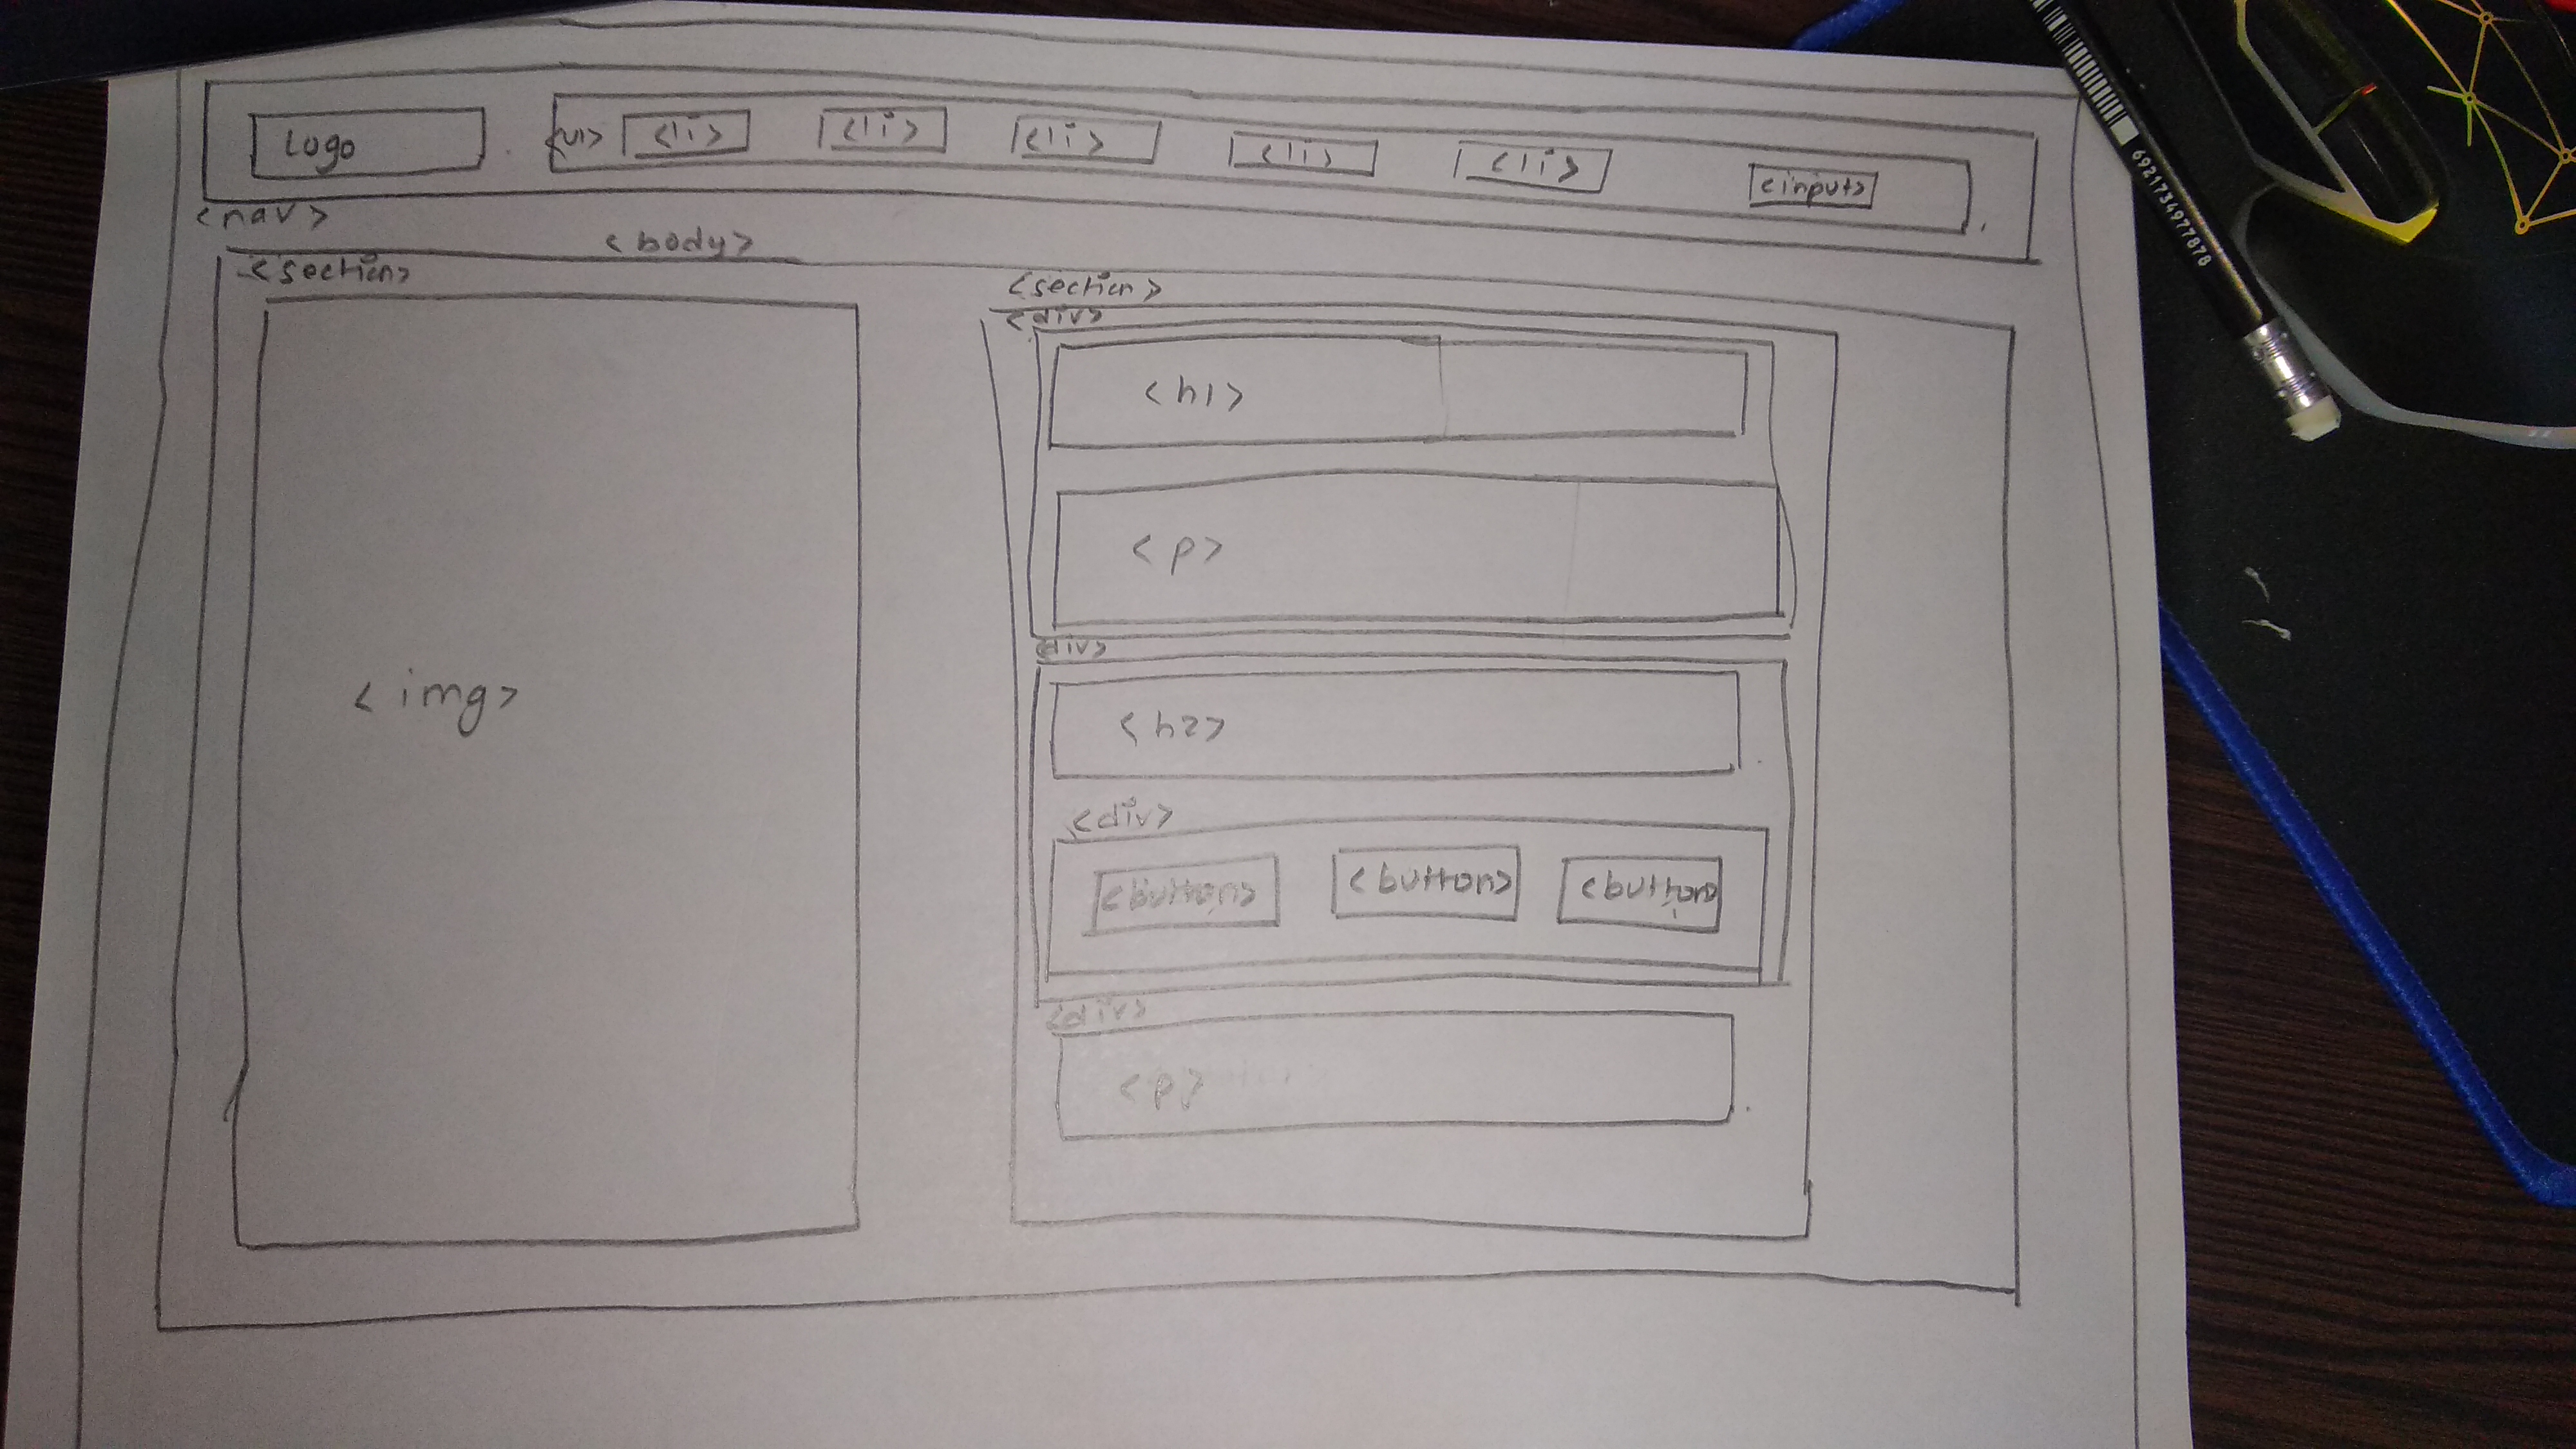 Logo <ul> <li> <li> <li> <li> <li> <input>
<nav>
<body>
<section>
<section>
<div>
<h1>
<p>
<div>
<img>
<h2>
<div>
<button> <button> <button>
<div>
<p>
6921734977878